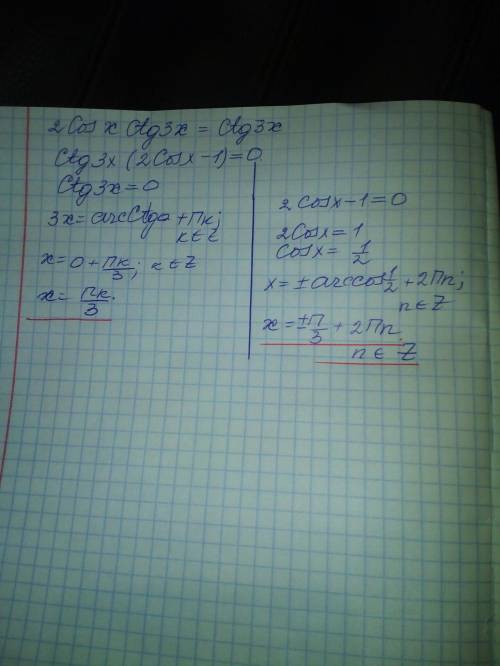 2Cosx Ctg3x = Ctg3x
Ctg3x (2Cosx-1)=0
Ctg3x=0
3x=arcCtg0+Пк;
к∈Z
x=0+Пк/3; к∈Z
x=Пк/3.
2Cosx-1=0
2Cosx=1
Cosx=1/2
x=±arccos1/2+2Пn;
n∈Z
x=±П/3+2Пn
n∈Z